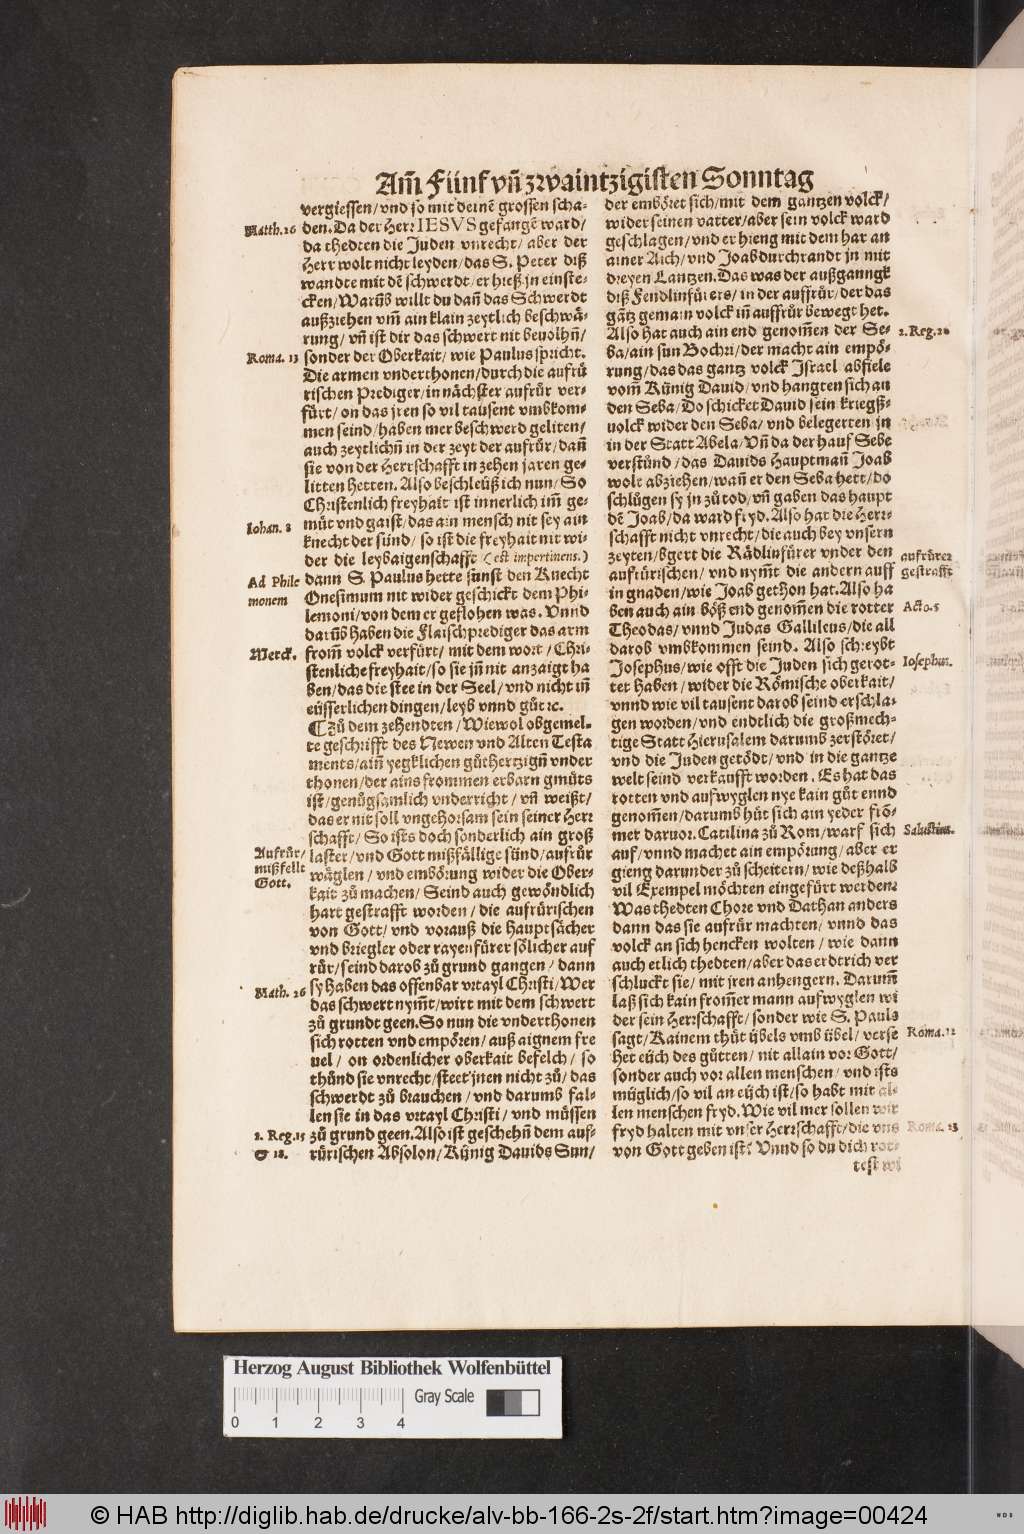 Am̃ Fünf vñ zwaintzigisten Sonntag
vergiessen/vnd so mit deinẽ grossen scha-
Matth.26 den. Da der Herr IESVS gefangẽ ward/
da thedten die Juden vnrecht/ aber der
Herr wolt nicht leyden/das S. Peter diß
wandte mit dẽ schwerdt/er hieß jn einste-
cken/Warũb willt du dañ das Schwerdt
außziehen vm̃ ain klain zeytlich beschwå-
rung/ vñ ist dir das schwert nit beuolhñ/
Roma. 13 sonder der Oberkait/ wie Paulus spricht.
Die armen vnderthonen/durch die aufrů
rischen Prediger/in nåchster aufrůr ver-
fürt/ on das jren so vil tausent vmbkom-
men seind/haben mer beschwerd geliten/
auch zeytlichñ in der zeyt der aufrůr/dañ
sie von der Herrschafft in zehen jaren ge-
litten hetten. Also beschleüß ich nun/ So
Christenlich freyhait ist innerlich im̃ ge-
Iohan. 8 můt vnd gaist/das ain mensch nit sey ain
knecht der sünd/ so ist die freyhait nit wi-
der die leybaigenschafft (est impertinens.)
Ad Phile dann S. Paulus hette sunst den Knecht
monem Onesimum nit wider geschickt dem Phi-
lemoni/von dem er geflohen was. Vnnd
darũb haben die Flaischprediger das arm
Merck. from̃ volck verfürt/ mit dem wort/Chri-
stenliche freyhait/so sie jñ nit anzaigt ha
ben/das die stee in der Seel/vnd nicht iñ
eüsserlichen dingen/leyb vnnd gůt ꝛc.
¶ Zů dem zehendten/Wiewol obgemel-
te geschrifft des Newen vnd Alten Testa
ments/aim̃ yegklichen gůthertzigñ vnder
thonen/der ains frommen erbarn gmůts
ist/genůgsamlich vnderricht/ vñ weißt/
das er nit soll vngehorsam sein seiner Herr
schafft/ So ists doch sonderlich ain groß
Aufrůr/ laster/vnd Gott mißfållige sünd/aufrůr
mißfellt wåglen/ vnd embörung wider die Ober-
Gott. kait zů machen/ Seind auch gewöndlich
hart gestrafft worden/ die aufrůrischen
von Gott/ vnd vorauß die hauptsåcher
vnd briegler oder rayenfürer sölicher auf
růr/seind darob zů grund gangen/ dann
Math. 26 sy haben das offenbar vrtayl Christi/Wer
das schwert nym̃t/wirt mit dem schwert
zů grundt geen. So nun die vnderthonen
sich rotten vnd empören/ auß aignem fre
uel/ on ordenlicher oberkait befelch/ so
thůnd sie vnrecht/steet jnen nicht zů/ das
schwerdt zů brauchen/ vnd darumb fal-
len sie in das vrtayl Christi/ vnd můssen
2. Reg.15 zů grund geen. Also ist geschehñ dem auf-
& 18. růrischen Absolon/Künig Dauids Sun/
der emböret sich/mit dem gantzen volck/
wider seinen vatter/aber sein volck ward
geschlagen/vnd er hieng mit dem har an
ainer Aich/vnd Joab durchrandt jn mit
dreyen Lantzen. Das was der außganngk
diß Fendlinfürers/in der auffrůr/der das
gãtz gemain volck iñ auffrůr bewegt het.
Also hat auch ain end genom̃en der Se- 2. Reg.20
ba/ain sun Bochri/der macht ain empö-
rung/das das gantz volck Israel abfiele
vom̃ Künig Dauid/vnd hangten sich an
den Seba/Do schicket Dauid sein kriegß-
uolck wider den Seba/ vnd belegerten jn
in der Statt Abela/Vñ da der hauf Sebe
verstůnd/das Dauids Hauptmañ Joab
wolt abziehen/wañ er den Seba hett/do
schlůgen sy jn zů tod/vñ gaben das haupt
dẽ Joab/da ward fryd. Also hat die Herr-
schafft nicht vnrecht/die auch bey vnsern
zeyten/bgert die Rådlinfürer vnder den aufrůrer
aufrůrischen/ vnd nym̃t die andern auff gestrafft
in gnaden/wie Joab gethon hat. Also ha
ben auch ain böß end genom̃en die rotter Acto.5
Theodas/vnnd Judas Gallileus/die all
darob vmbkommen seind. Also schreybt
Josephus/wie offt die Juden sich gerot- Iosephus.
tet haben/wider die Römische oberkait/
vnnd wie vil tausent darob seind erschla-
gen worden/vnd endtlich die großmech-
tige Statt Hierusalem darumb zerstöret/
vnd die Juden getödt/vnd in die gantze
welt seind verkaufft worden. Es hat das
rotten vnd aufwyglen nye kain gůt ennd
genom̃en/darumb hůt sich ain yeder frõ-
mer daruor. Catilina zů Rom/warf sich Salustius.
auf/vnnd machet ain empörung/aber er
gieng darunder zů scheitern/wie deßhalb
vil Exempel möchten eingefürt werden.
Was thedten Chore vnd Dathan anders
dann das sie aufrůr machten/ vnnd das
volck an sich hencken wolten/ wie dann
auch etlich thedten/aber das erdtrich ver
schluckt sie/ mit jren anhengern. Darum̃
laß sich kain from̃er mann aufwyglen wi
der sein Herrschafft/sonder wie S. Pauls
sagt/Kainem thůt übels vmb übel/verse Roma.12
het eüch des gůtten/ nit allain vor Gott/
sonder auch vor allen menschen/ vnd ists
müglich/so vil an eüch ist/so habt mit al-
len menschen fryd. Wie vil mer sollen wir
fryd halten mit vnser Herrschafft/die vns Roma. 13
von Gott geben ist? Vnnd so du dich rot-
test wi
Herzog August Bibliothek Wolfenbüttel
Gray Scale
0 1 2 3 4
© HAB http://diglib.hab.de/drucke/alv-bb-166-2s-2f/start.htm?image=00424